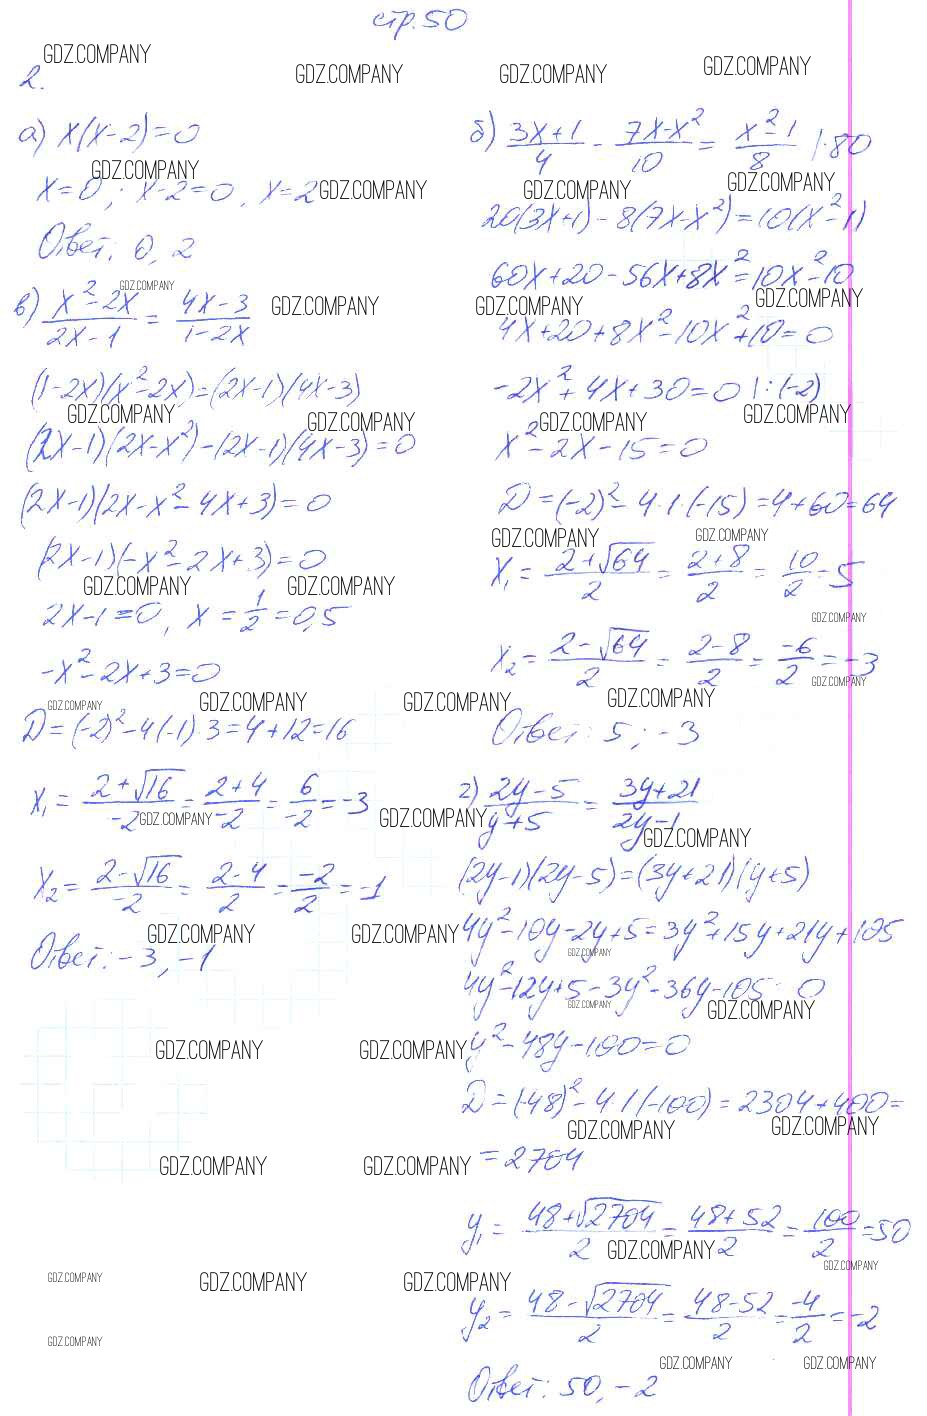 стр. 50
2.
а) x(x-2)=0
x=0; x-2=0, x=2
Ответ: 0, 2
в) (x²-2x)/(2x-1) = (4x-3)/(1-2x)
(1-2x)(x²-2x)=(2x-1)(4x-3)
(2x-1)(2x-x²)-(2x-1)(4x-3)=0
(2x-1)(2x-x²-4x+3)=0
(2x-1)(-x²-2x+3)=0
2x-1=0, x=1/2=0,5
-x²-2x+3=0
D=(-2)²-4(-1)·3=4+12=16
x₁=(2+√16)/-2=(2+4)/-2=6/-2=-3
x₂=(2-√16)/-2=(2-4)/2=-2/2=-1
Ответ: -3, -1
б) (3x+1)/4 - (7x-x²)/10 = (x²-1)/8 |·80
20(3x+1)-8(7x-x²)=10(x²-1)
60x+20-56x+8x²=10x²-10
4x+20+8x²-10x²+10=0
-2x²+4x+30=0 |:(-2)
x²-2x-15=0
D=(-2)²-4·1·(-15)=4+60=64
x₁=(2+√64)/2=(2+8)/2=10/2=5
x₂=(2-√64)/2=(2-8)/2=-6/2=-3
Ответ: 5; -3
г) (2y-5)/(y+5) = (3y+21)/(2y-1)
(2y-1)(2y-5)=(3y+21)(y+5)
4y²-10y-2y+5=3y²+15y+21y+105
4y²-12y+5-3y²-36y-105=0
y²-48y-100=0
D=(-48)²-4·1(-100)=2304+400=
=2704
y₁=(48+√2704)/2=(48+52)/2=100/2=50
y₂=(48-√2704)/2=(48-52)/2=-4/2=-2
Ответ: 50, -2
GDZ.COMPANY